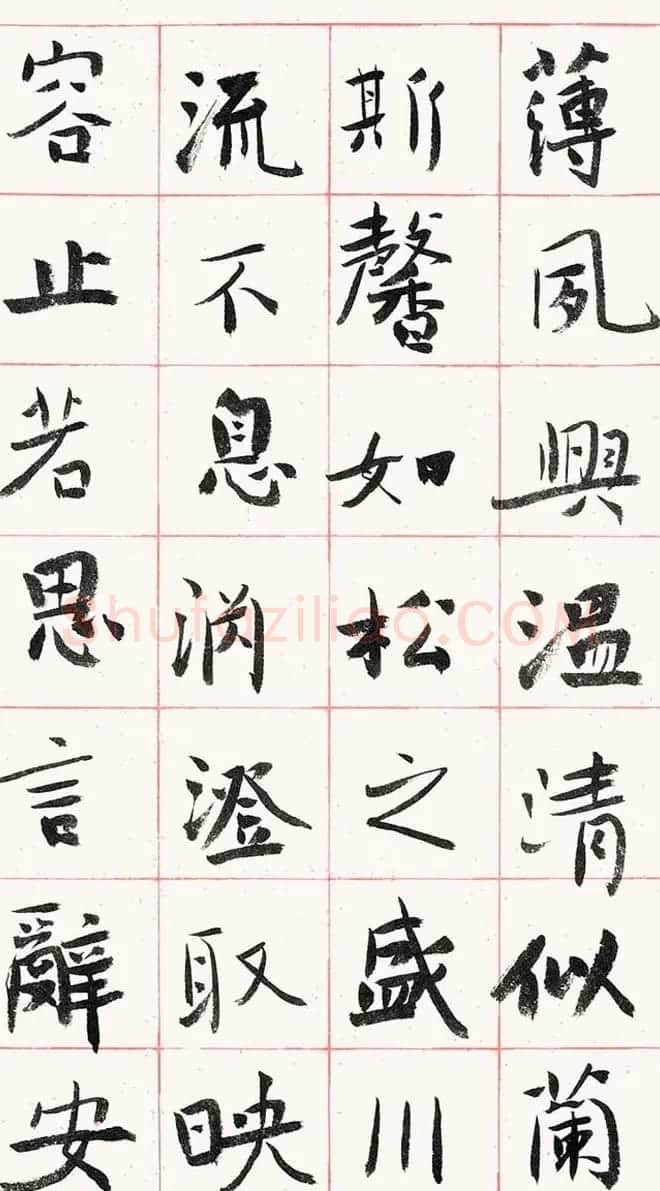 薄夙興溫清似蘭
斯馨如松之盛川
流不息淵澄取映
容止若思言辭安
Shufaziliao.COM